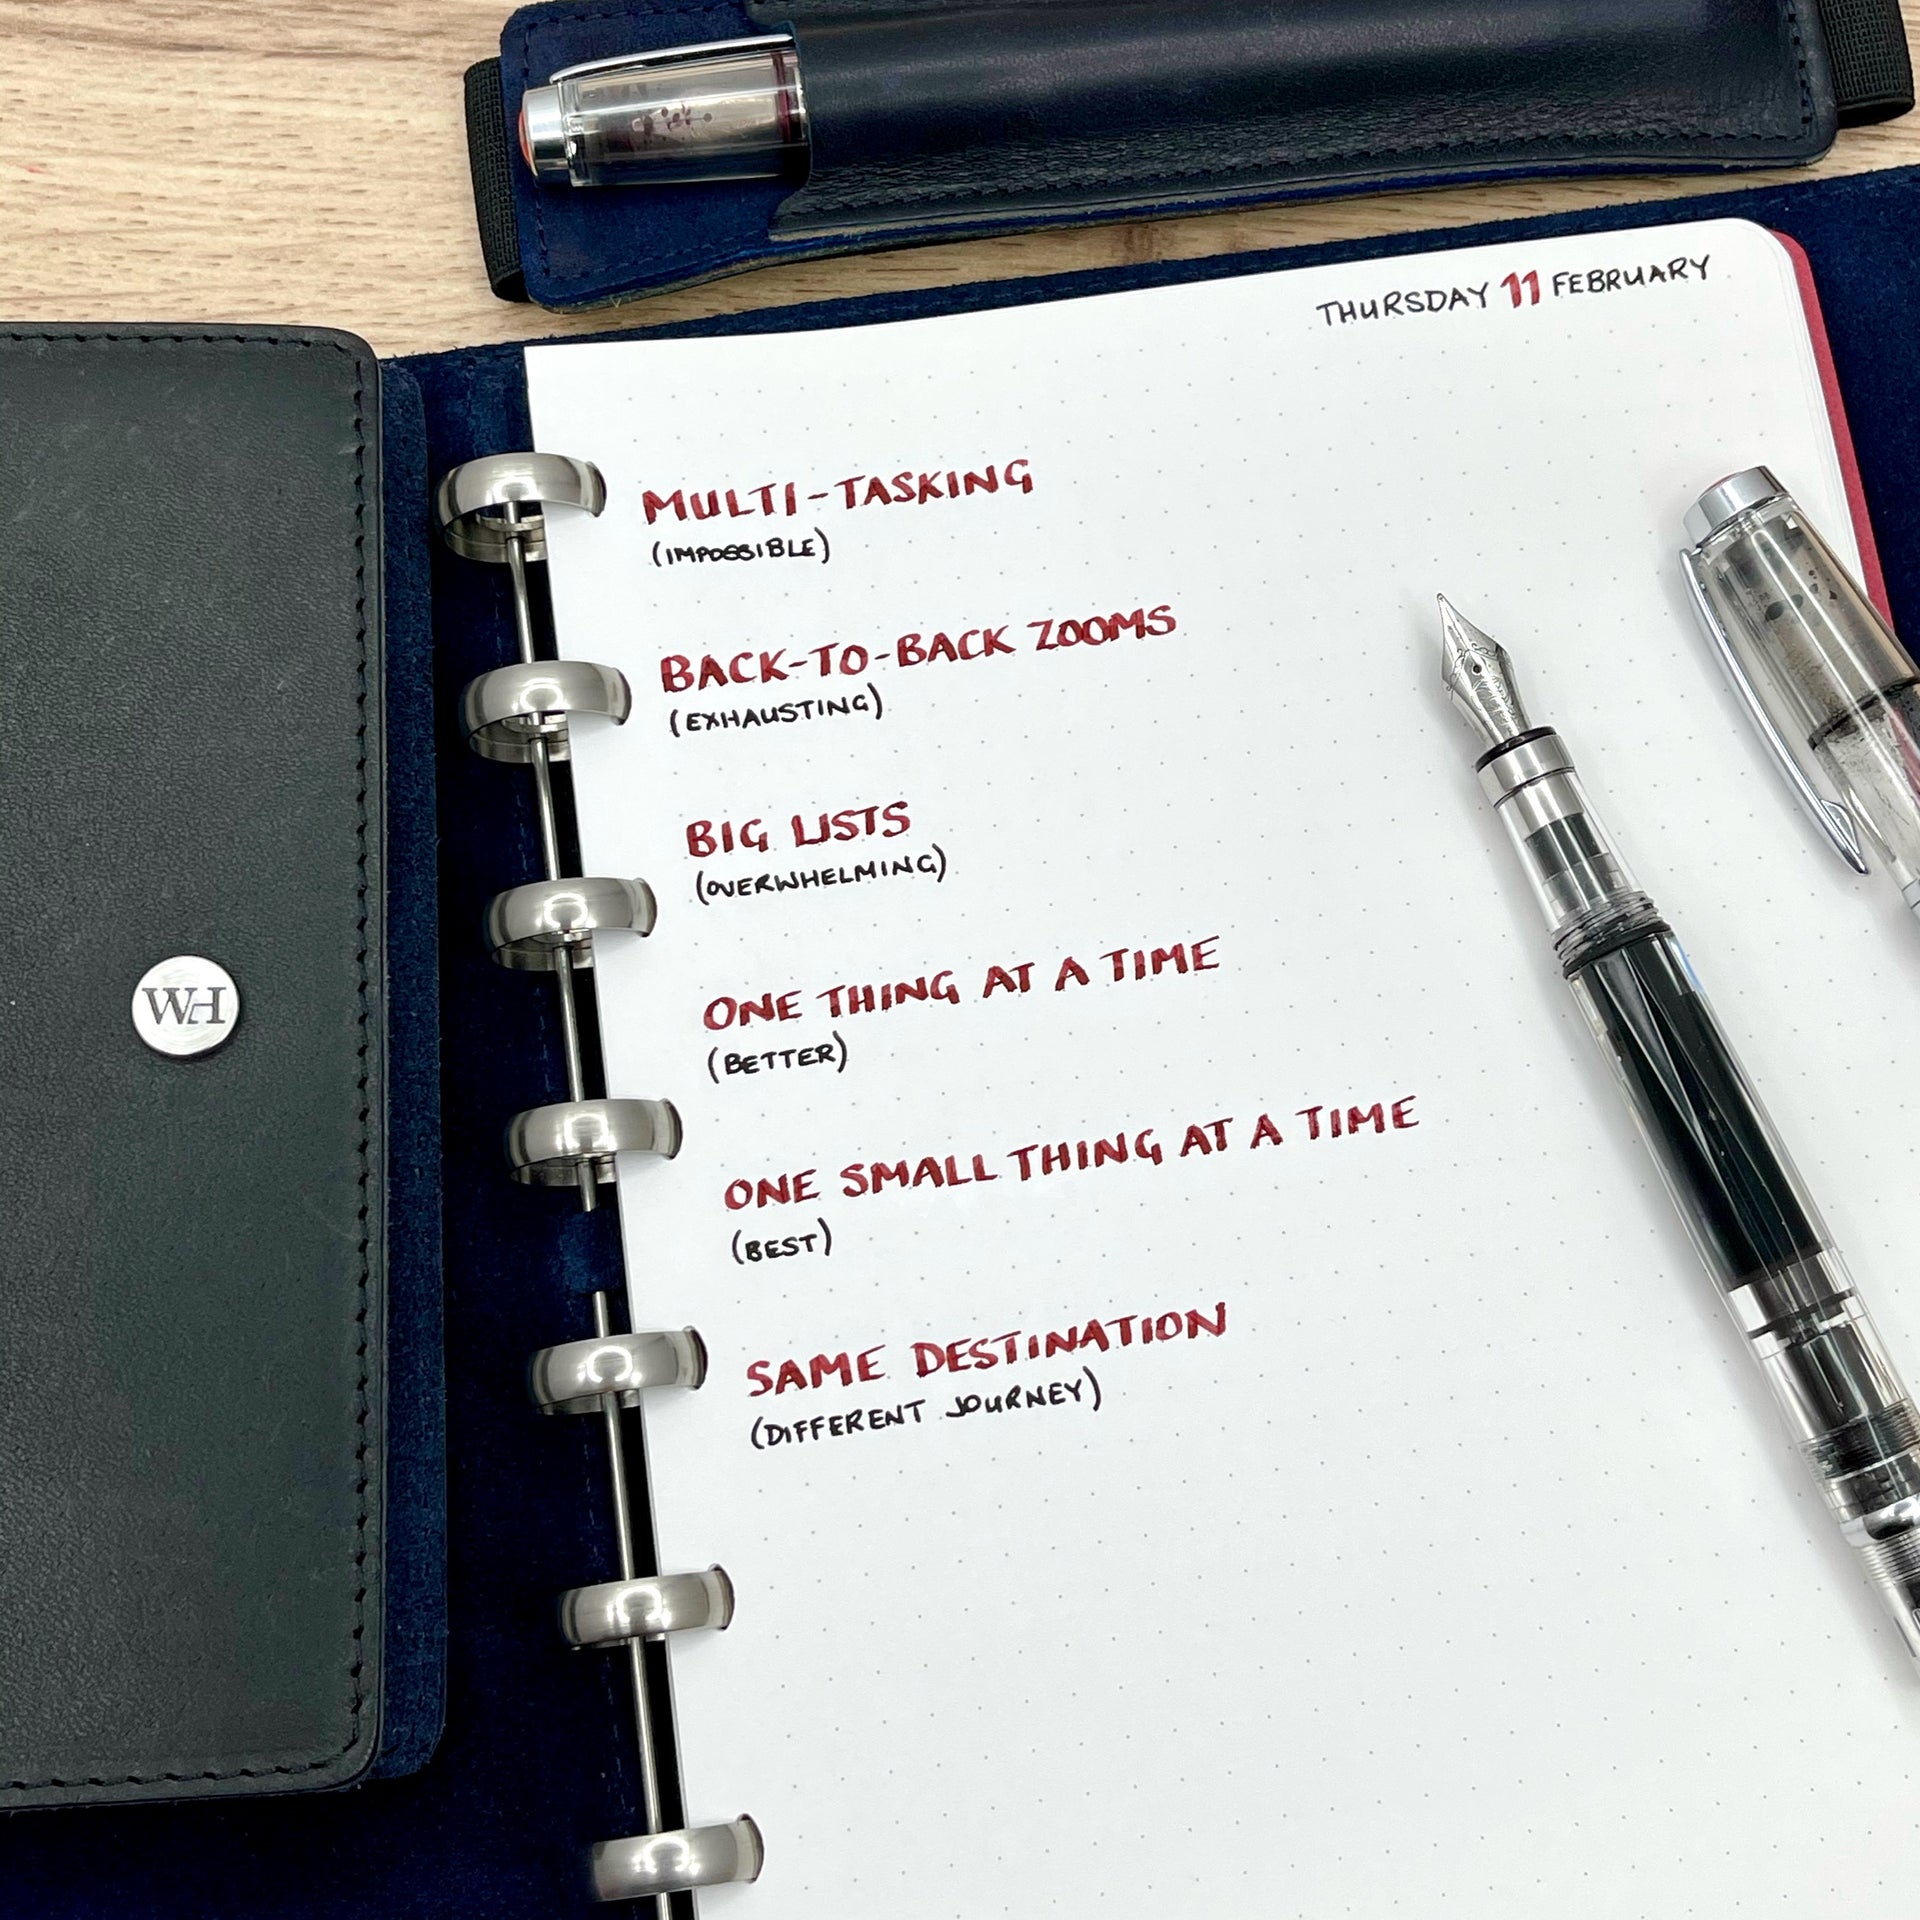 THURSDAY 11 FEBRUARY
MULTI-TASKING
(IMPOSSIBLE)
BACK-TO-BACK ZOOMS
(EXHAUSTING)
BIG LISTS
(OVERWHELMING)
ONE THING AT A TIME
(BETTER)
ONE SMALL THING AT A TIME
(BEST)
SAME DESTINATION
(DIFFERENT JOURNEY)
WH